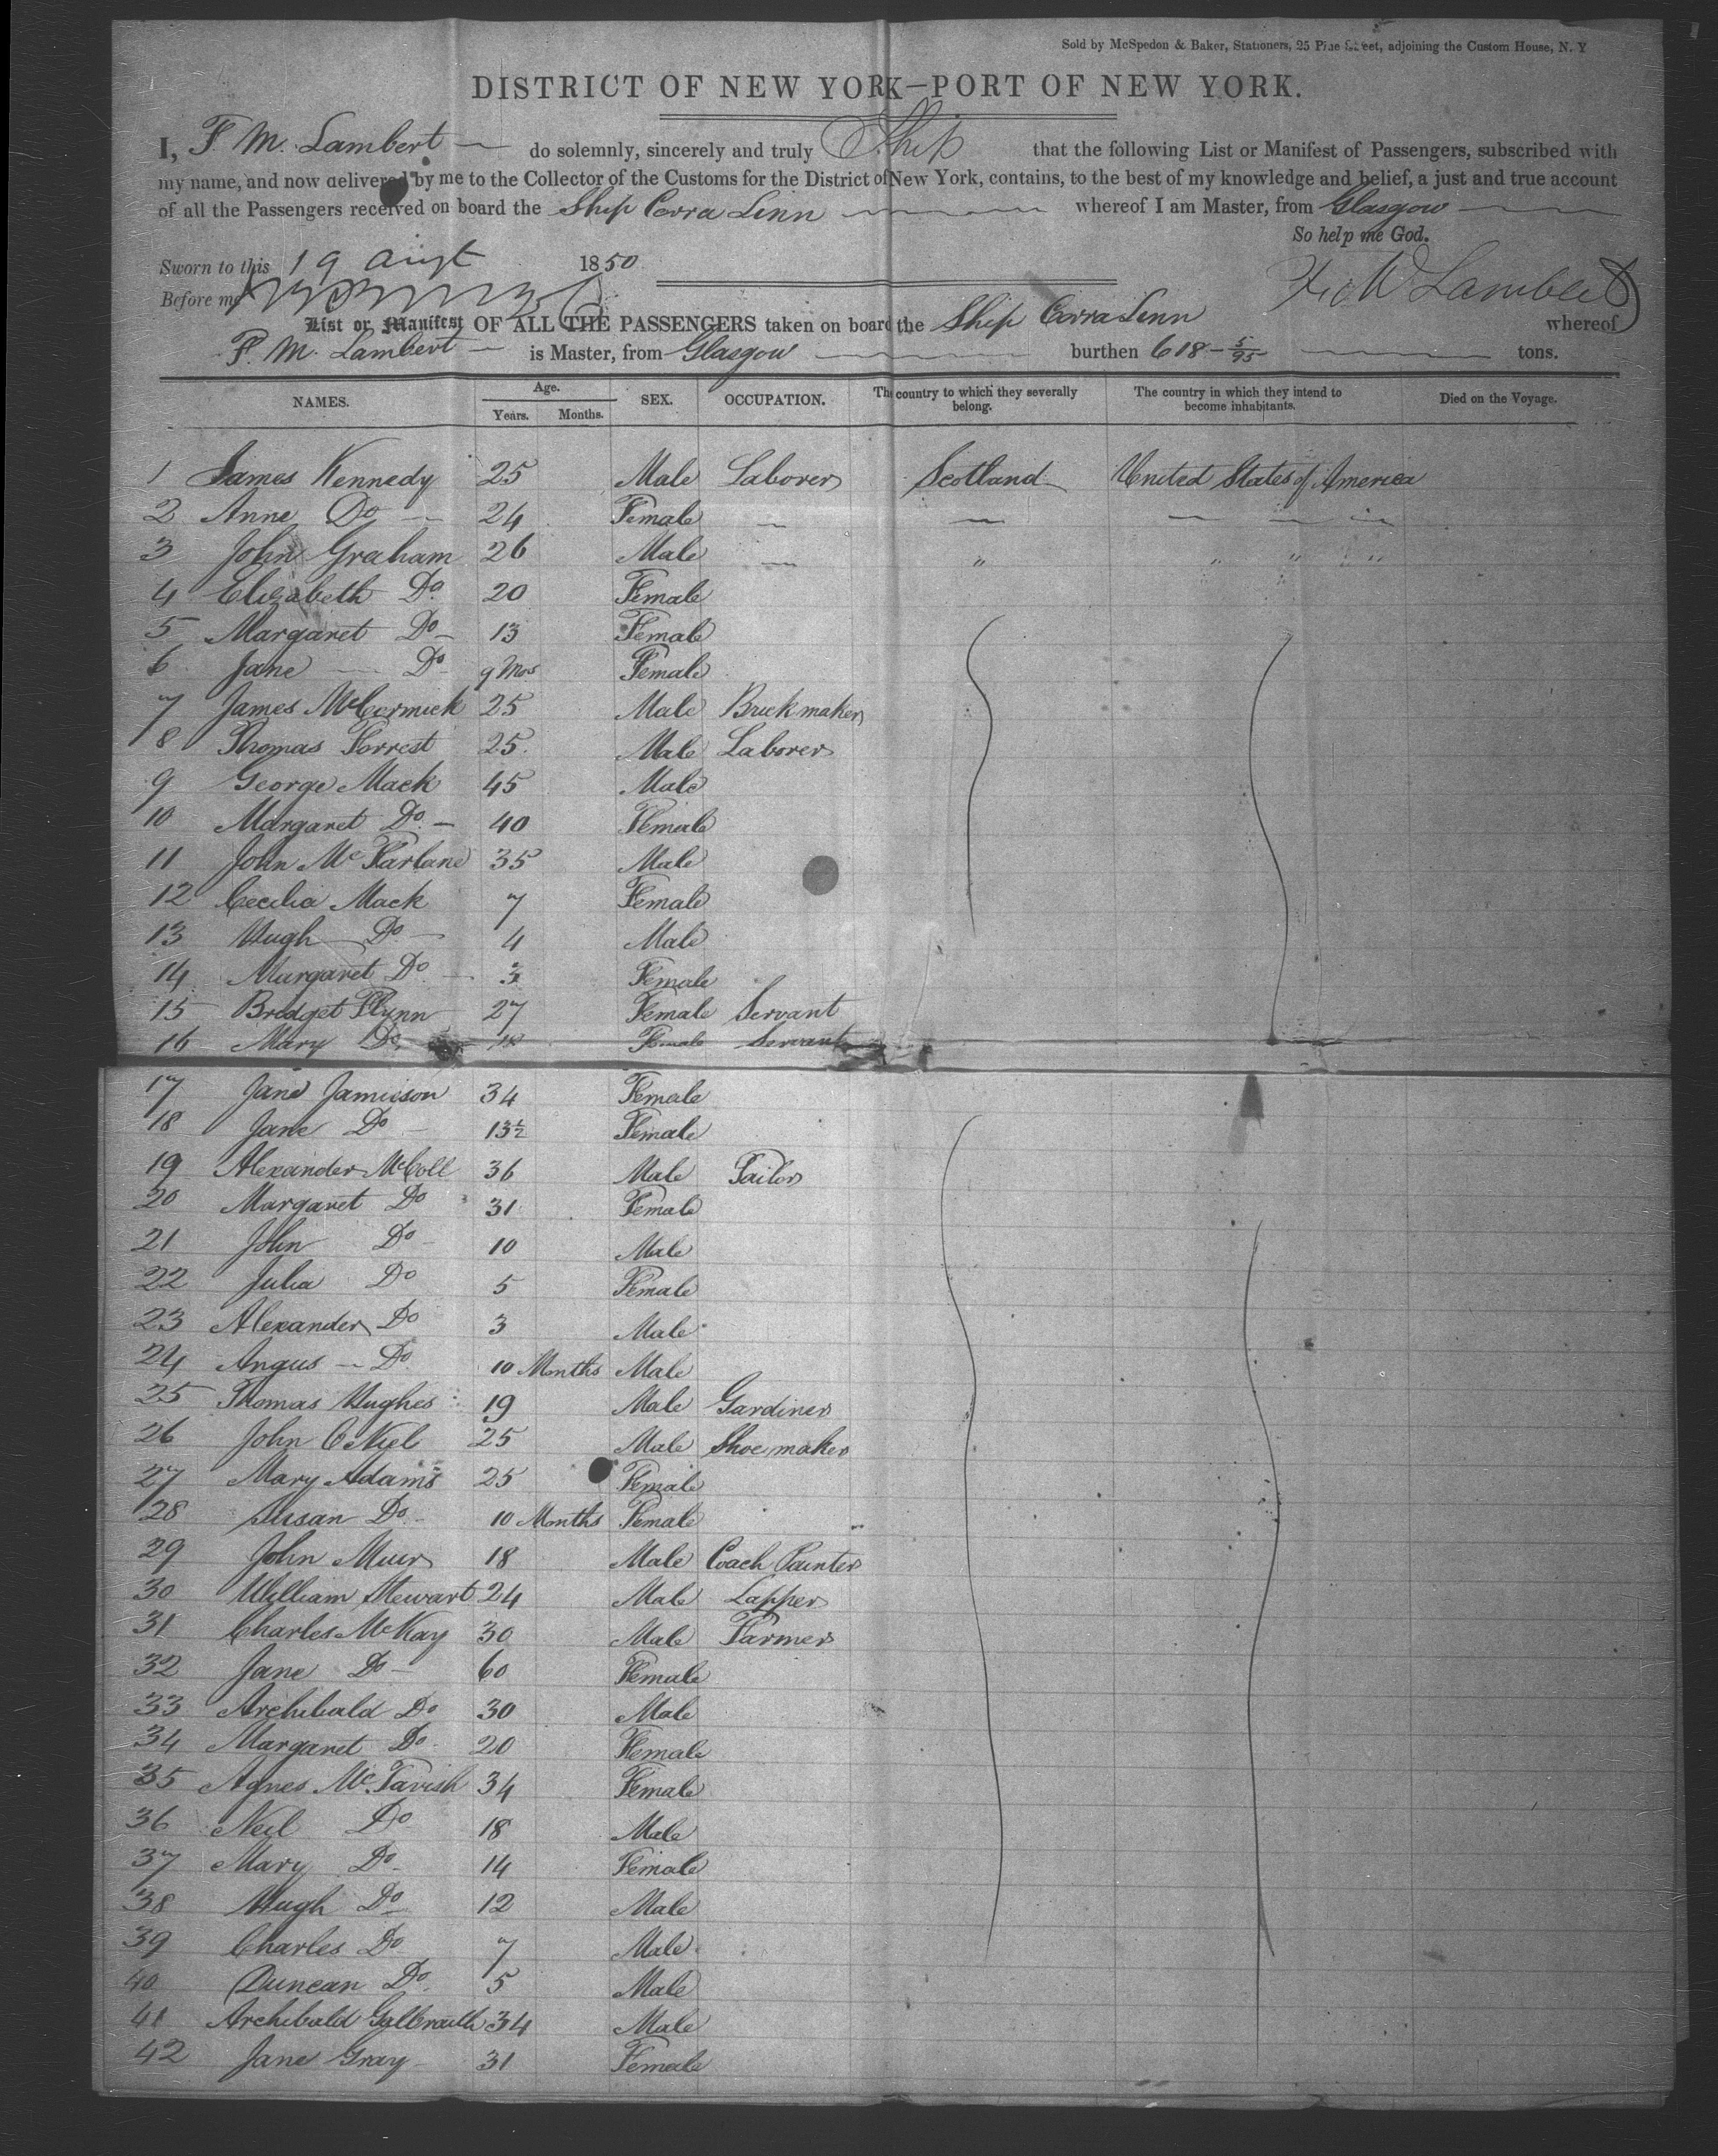 Sold by McSpedon & Baker, Stationers, 25 Pine Street, adjoining the Custom House, N. Y
DISTRICT OF NEW YORK—PORT OF NEW YORK.
I, F. M. Lambert do solemnly, sincerely and truly Ship that the following List or Manifest of Passengers, subscribed with
my name, and now delivered by me to the Collector of the Customs for the District of New York, contains, to the best of my knowledge and belief, a just and true account
of all the Passengers received on board the Ship Corra Linn whereof I am Master, from Glasgow
So help me God.
Sworn to this 19 augt 1850
Before me
Lambert
List or Manifest OF ALL THE PASSENGERS taken on board the Ship Corra Linn whereof
F. M. Lambert is Master, from Glasgow burthen 618 - 5/95 tons.
NAMES. Age. Years. Months. SEX. OCCUPATION. The country to which they severally belong. The country in which they intend to become inhabitants. Died on the Voyage.
1 James Kennedy 25 Male Laborer Scotland United States of America
2 Anne Do 24 Female
3 John Graham 26 Male " " " "
4 Elizabeth Do 20 Female
5 Margaret Do 13 Female
6 Jane Do 9 Mos Female
7 James McCormick 25 Male Brickmaker
8 Thomas Forrest 25 Male Laborer
9 George Mack 45 Male
10 Margaret Do 40 Female
11 John McFarlane 35 Male
12 Cecilia Mack 7 Female
13 Hugh Do 4 Male
14 Margaret Do 3 Female
15 Bredget Flynn 27 Female Servant
16 Mary Do Female Servant
17 Jane Jamieson 34 Female
18 Jane Do 13½ Female
19 Alexander McColl 36 Male Tailor
20 Margaret Do 31 Female
21 John Do 10 Male
22 Julia Do 5 Female
23 Alexander Do 3 Male
24 Angus Do 10 Months Male
25 Thomas Hughes 19 Male Gardiner
26 John O Niel 25 Male Shoe maker
27 Mary Adams 25 Female
28 Susan Do 10 Months Female
29 John Muir 18 Male Coach Painter
30 William Stewart 24 Male Lapper
31 Charles McKay 30 Male Farmer
32 Jane Do 60 Female
33 Archibald Do 30 Male
34 Margaret Do 20 Female
35 Agnes McTavish 34 Female
36 Neil Do 18 Male
37 Mary Do 14 Female
38 Hugh Do 12 Male
39 Charles Do 7 Male
40 Duncan Do 5 Male
41 Archibald Galbraith 34 Male
42 Jane Gray 31 Female